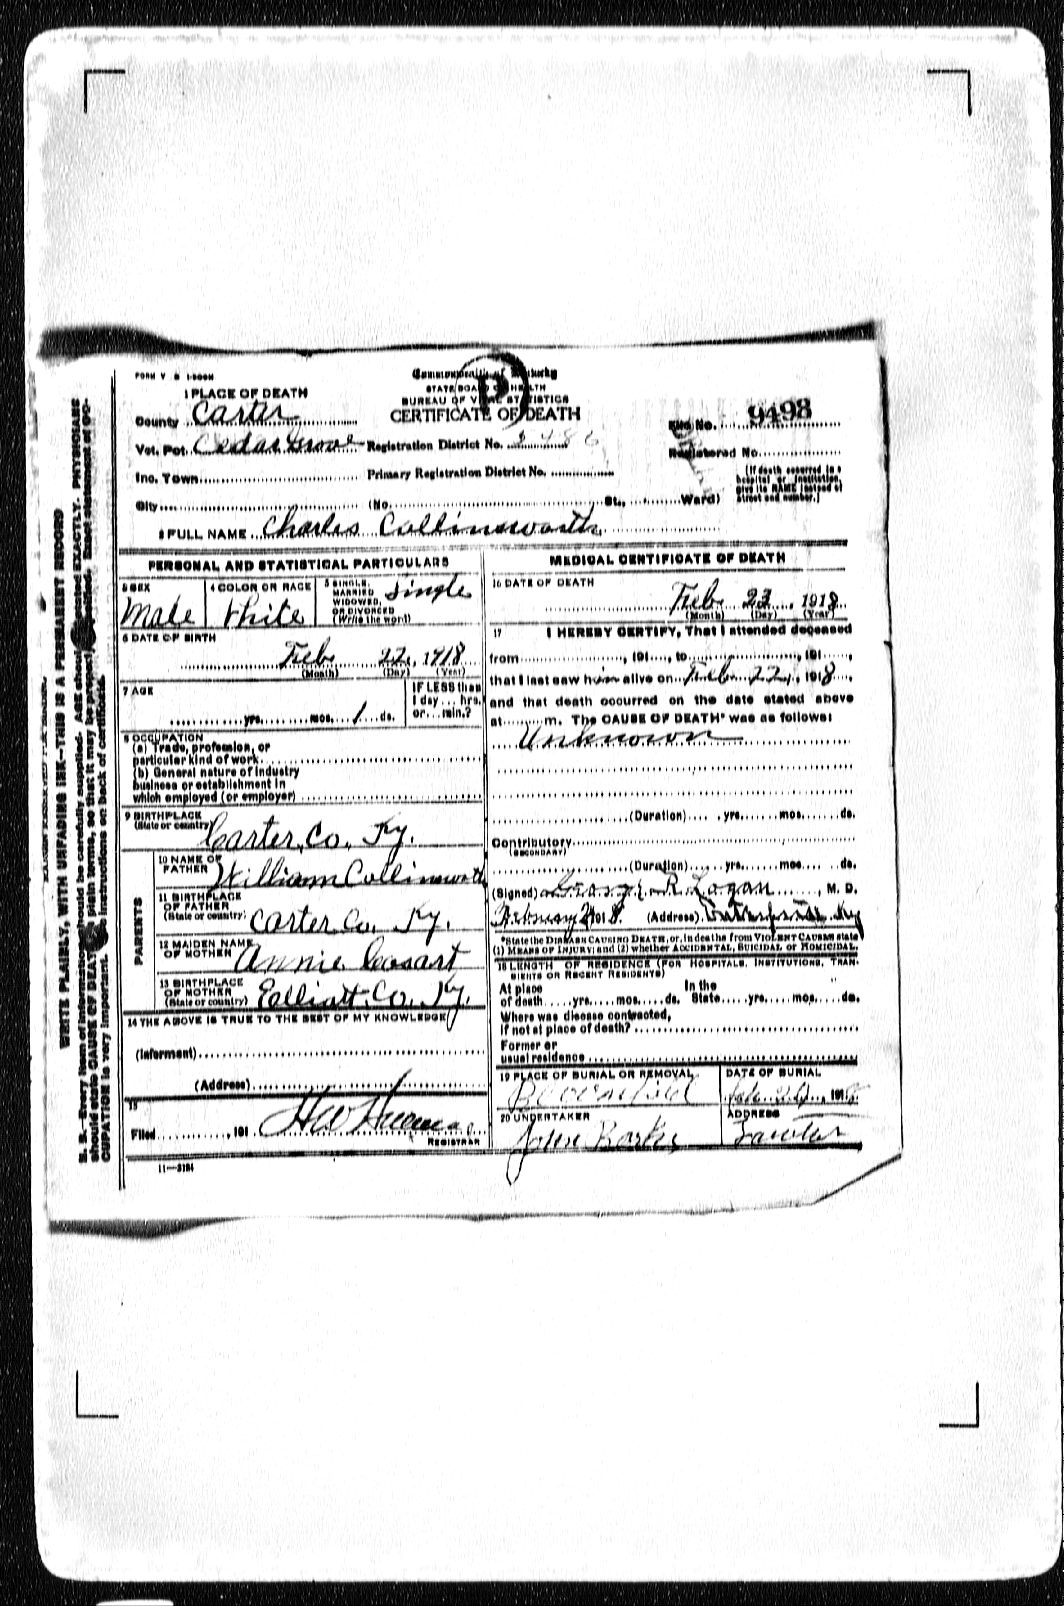 FORM V S 1-500M
Commonwealth of Kentucky
STATE BOARD OF HEALTH
BUREAU OF VITAL STATISTICS
CERTIFICATE OF DEATH
P
1 PLACE OF DEATH
County Carter
File No. 9498
Vot. Pct. Cedar Grove Registration District No.
Registered No.
Inc. Town Primary Registration District No.
(If death occurred in a hospital or institution, give its NAME instead of street and number.)
City (No. St., Ward)
2 FULL NAME Charles Collinsworth
PERSONAL AND STATISTICAL PARTICULARS
3 SEX Male
4 COLOR OR RACE White
5 SINGLE, MARRIED WIDOWED, OR DIVORCED (Write the word) Single
6 DATE OF BIRTH
Feb 22, 1918
(Month) (Day) (Year)
7 AGE
yrs. mos. 1 ds.
IF LESS than 1 day ... hrs. or ... min.?
8 OCCUPATION
(a) Trade, profession, or
particular kind of work
(b) General nature of industry
business or establishment in
which employed (or employer)
9 BIRTHPLACE
(State or country) Carter, Co, Ky.
PARENTS
10 NAME OF FATHER William Collinsworth
11 BIRTHPLACE OF FATHER (State or country) Carter Co, Ky.
12 MAIDEN NAME OF MOTHER Annie Cosart
13 BIRTHPLACE OF MOTHER (State or country) Elliott Co. Ky.
14 THE ABOVE IS TRUE TO THE BEST OF MY KNOWLEDGE
(Informant)
(Address)
15
Filed 191
REGISTRAR
11—3184
MEDICAL CERTIFICATE OF DEATH
16 DATE OF DEATH
Feb 23, 1918
(Month) (Day) (Year)
17 I HEREBY CERTIFY, That I attended deceased
from , 191 , to , 191 ,
that I last saw him alive on Feb 22, 1918,
and that death occurred on the date stated above
at m. The CAUSE OF DEATH* was as follows:
Unknown
(Duration) yrs. mos. ds.
Contributory
(SECONDARY)
(Duration) yrs. mos ds.
(Signed) George R. Logan, M. D.
February 1918. (Address) Ky
*State the DISEASE CAUSING DEATH, or, in deaths from VIOLENT CAUSES state
(1) MEANS OF INJURY; and (2) whether ACCIDENTAL, SUICIDAL or HOMICIDAL.
18 LENGTH OF RESIDENCE (FOR HOSPITALS, INSTITUTIONS, TRANSIENTS OR RECENT RESIDENTS)
At place of death yrs. mos. ds. In the State yrs. mos. ds.
Where was disease contracted,
if not at place of death?
Former or
usual residence
19 PLACE OF BURIAL OR REMOVAL
DATE OF BURIAL
20 UNDERTAKER
John
ADDRESS
WRITE PLAINLY, WITH UNFADING INK—THIS IS A PERMANENT RECORD
N. B.—Every item of information should be carefully supplied. AGE should be stated EXACTLY. PHYSICIANS
should state CAUSE OF DEATH in plain terms, so that it may be properly classified. Exact statement of OC-
CUPATION is very important. See instructions on back of certificate.